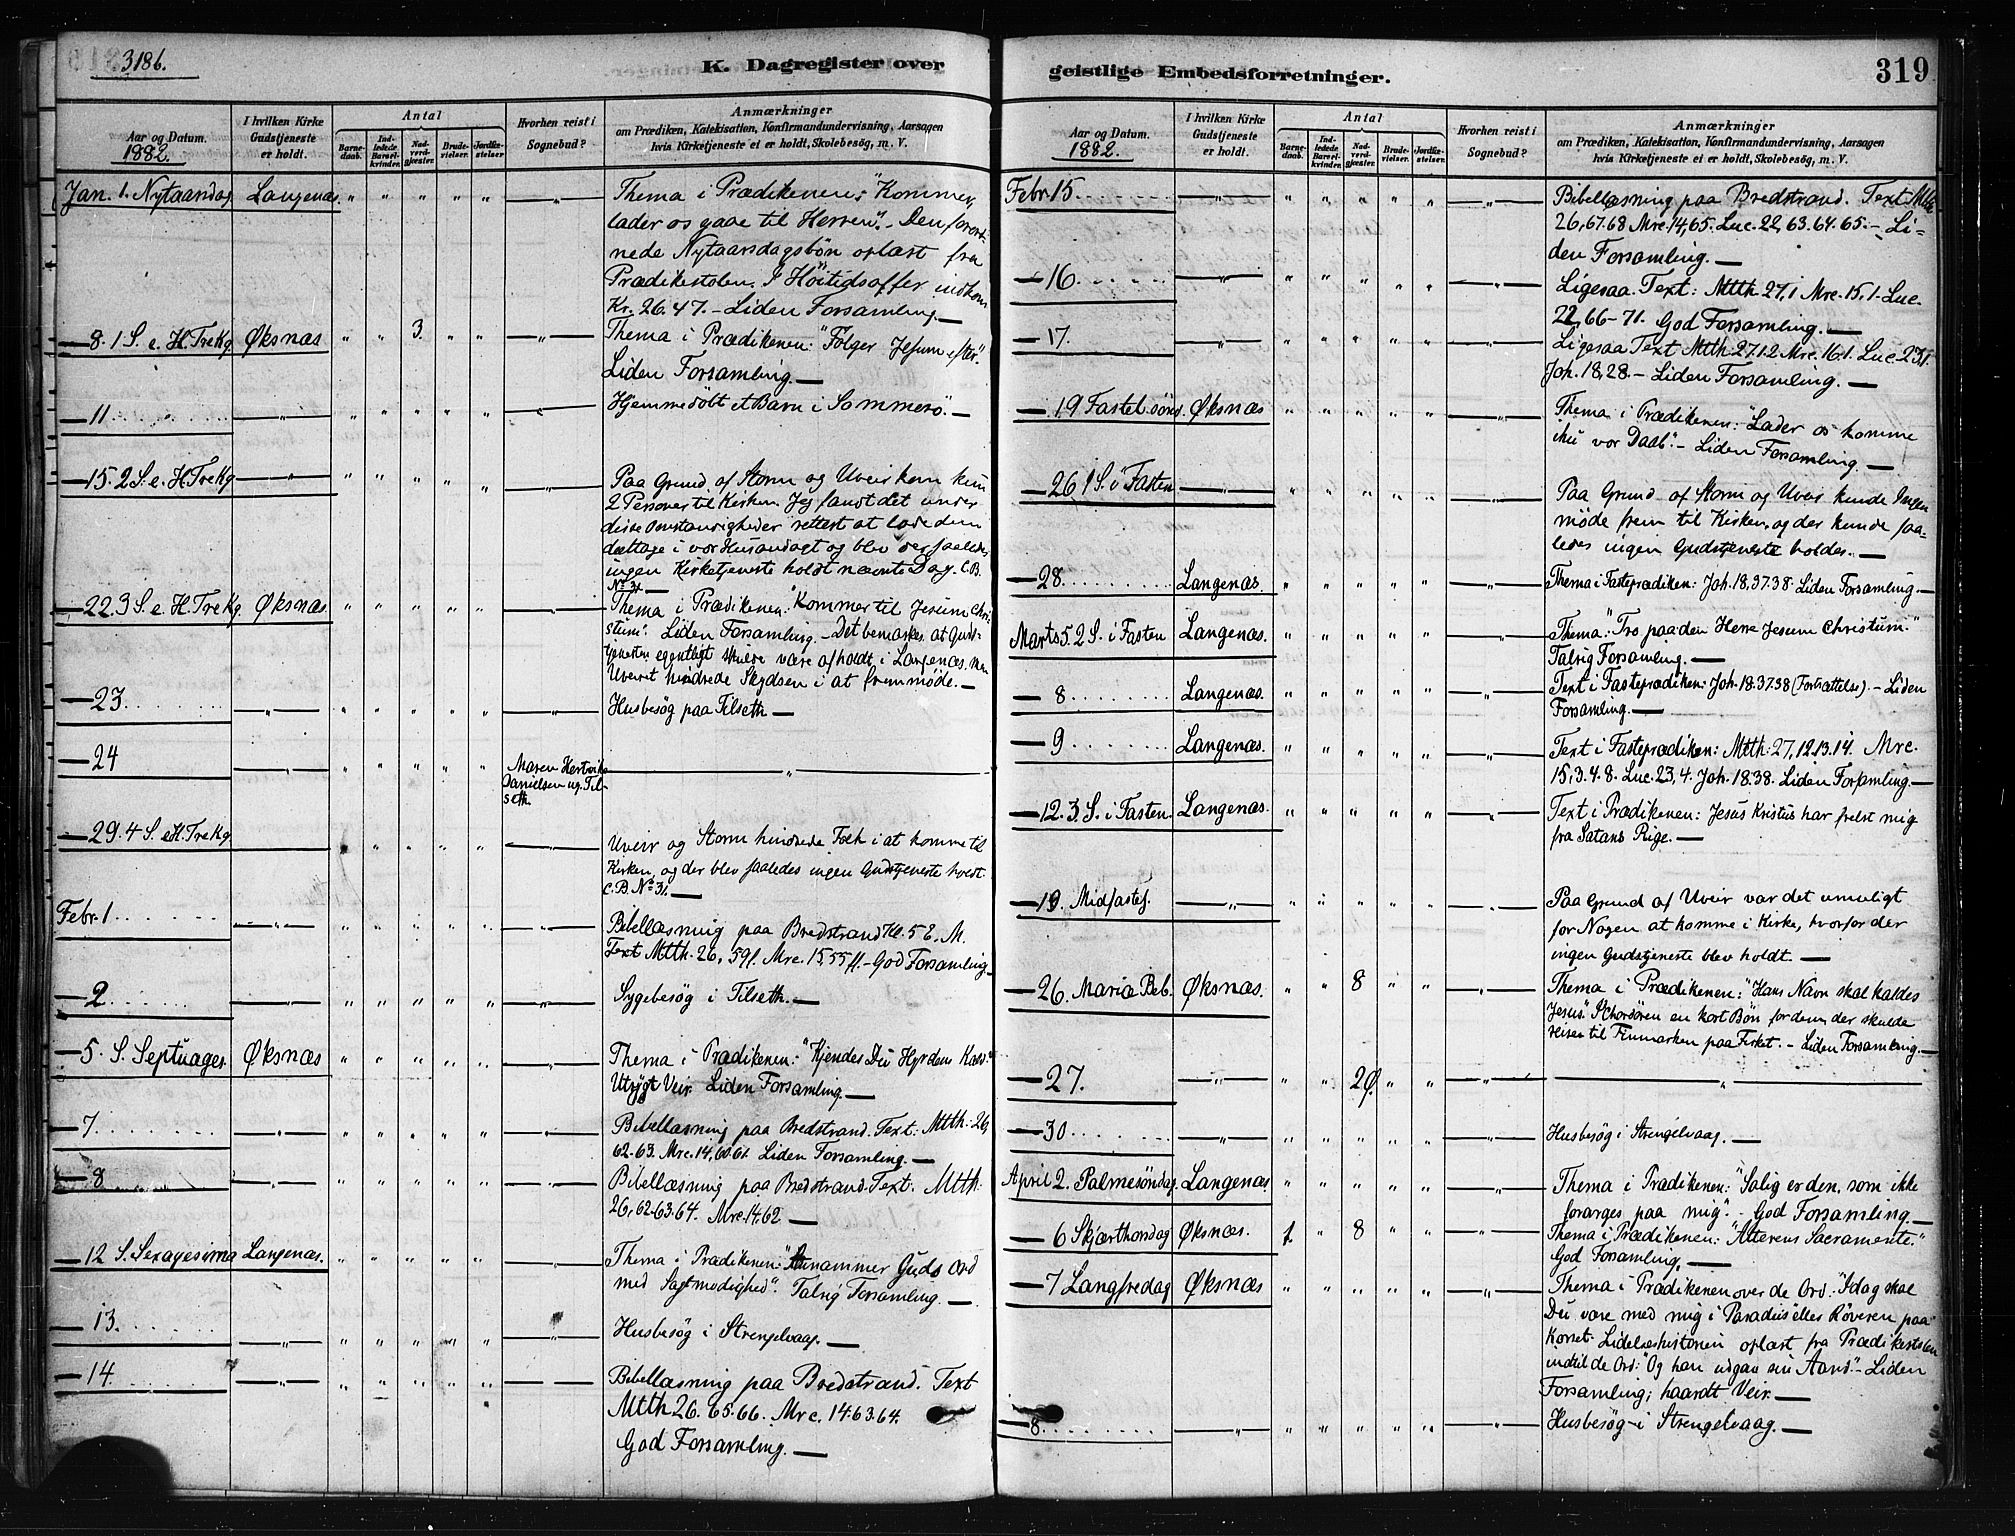 318b.
K. Dagregister over
Aar og Datum.
1882.
I hvilken Kirke
Gudstjeneste
er holdt.
Antal
Barne-
daab.
Ind-
ledede
Barsel-
kvinder.
Nad-
verd-
gjæster.
Brude-
vielser.
Jordfæ-
stelser.
Hvorhen reist i
Sognebud?
Anmærkninger
om Prædiken, Katekisation, Konfirmandundervisning, Aarsagen
hvis Kirketjeneste ei er holdt, Skolebesøg, m. V.
Jan. 1. Nytaarsdag Langenæs. " " " " " —"— Thema i Prædikenen: "Kommer,
lader os gaae til Herren". - Den forord-
nede Nytaarsdagsbøn oplæst fra
Prædikestolen. I Høitidsoffer indkom
Kr. 26.47. - Liden Forsamling. —
— 8. 1 S. e. H. Tre Kg. Øksnæs " " 3. " " —"— Thema i Prædikenen: "Følger Jesum efter".
Liden Forsamling. —
— 11 . . . . . —"— " " " " " —"— Hjemmedøbt et Barn i Sommerø. —
— 15. 2 S. e. H. Tre Kg —"— " " " " " —"— Paa Grund af Storm og Uveir kom kun
2 Personer til Kirken. Jeg fandt det under
disse Omstændigheder rettest at lade dem
deeltage i vor Husandagt og blev der saaledes
ingen Kirketjeneste holdt nævnte Dag. C.B.
No 31 —
— 22. 3 S. e. H. Tre Kg. Øksnæs. " " " " " —"— Thema i Prædikenen: "Kommer til Jesum Chri-
stum". Liden Forsamling. - Det bemærkes at Guds-
tjenesten egentligt skulde være afholdt i Langenæs, men
Uveiret hindrede Skydsen i at fremmøde. —
— 23 . . . . . —"— " " " " " —"— Husbesøg paa Tilseth —
— 24 —"— " " " " " Maren Hertvike
Danielsen ug. Til-
seth. —"—
— 29. 4 S. e H. Tre Kg. " " " " —"— Uveir og Storm hindrede Folk i at komme til
Kirken, og der blev saaledes ingen Gudstjeneste holdt.
C.B. No 31. —
Febr. 1 . . . . . —"— " " " " " —"— Bibellæsning paa Bredstrand Kl. 5 E. M.
Text Mtth. 26, 59f. Mrc. 15,55 ff. - God Forsamling. —
— 2 . . . . . —"— " " " " " —"— Sygebesøg i Tilseth. —
— 5. S. Septuages. Øksnæs " " " " " —"— Thema i Prædikenen: "Kjendes Du Hyrdens Kald"
Utrygt Veir. Liden Forsamling. —
— 7. . . . . . —"— " " " " " —"— Bibellæsning paa Bredstrand. Text: Mtth. 26,
62-63. Mrc. 14, 60-61. Liden Forsamling. —
— 8 —"— " " " " " —"— Bibellæsning paa Bredstrand. Text. Mtth.
26, 62-63.64. Mrc. 14.62 —
— 12 S. Sexagesima Langenæs. " " " " " —"— Thema i Prædikenen: "Annammer Guds Ord
med Sagtmodighed". Talrig Forsamling. —
— 13. . . . . . —"— " " " " " —"— Husbesøg i Strengelvaag. —
— 14. . . . . . —"— " " " " " —"— Bibellæsning paa Bredstrand. Text
Mtth 26. 65.66. Mrc. 14.63.64.
God Forsamling. —
geistlige Embedsforretninger.
319
Aar og Datum.
1882.
I hvilken Kirke
Gudstjeneste
er holdt.
Antal
Barne-
daab.
Ind-
ledede
Barsel-
kvinder.
Nad-
verd-
gjæster.
Brude-
vielser.
Jordfæ-
stelser.
Hvorhen reist i
Sognebud?
Anmærkninger
om Prædiken, Katekisation, Konfirmandundervisning, Aarsagen
hvis Kirketjeneste ei er holdt, Skolebesøg, m. V.
Febr. 15. . . . . —"— " " " " " —"— Bibellæsning paa Bredstrand. Text Mtth
26, 67.68 Mrc. 14, 65. Luc. 22, 63.64.65. - Li-
den Forsamling. —
— 16 . . . . . —"— " " " " " —"— Ligesaa. Text: Mtth. 27,1 Mrc. 15,1. Luc.
22, 66-71. God Forsamling. —
— 17. . . . . —"— " " " " " —"— Ligesaa Text Mtth. 27.1.2 Mrc. 16.1. Luc. 23,1.
Joh. 18, 28. - Liden Forsamling. —
— 19 Fastel.sönd. Øksnæs " " " " " —"— Thema i Prædikenen: "Lader os komme
ihu vor Daab". - Liden Forsamling. —
— 26 1 S. i Fasten —"— " " " " " —"— Paa Grund af Storm og Uveir kunde Ingen
møde frem til Kirken, og der kunde saa-
ledes ingen Gudstjeneste holdes. —
— 28. . . . . . Langenæs. " " " " " —"— Thema i Fasteprædiken: Joh. 18, 37.38. Liden Forsamling. —
Marts 5 2 S. i Fasten Langenæs. " " " " " —"— Thema: "Tro paa den Herre Jesum Christum."
Talrig Forsamling. —
— 8 . . . . . Langenæs. " " " " " —"— Text i Fasteprædiken: Joh. 18.37.38 (Fortsættelse). - Liden
Forsamling. —
— 9 . . . . . Langenæs. " " " " " —"— Text i Fasteprædiken: Mtth. 27, 12.13.14. Mrc.
15, 3.4.8. Luc. 23, 4. Joh. 18.38. Liden Forsamling. —
— 12. 3 S. i Fasten. Langenæs. " " " " " —"— Text i Prædikenen: Jesus Kristus har frelst mig
fra Satans Rige. —
— 19. Midfastes. —"— " " " " " —"— Paa Grund af Uveir var det umuligt
for Nogen at komme i Kirke, hvorfor der
ingen Gudstjeneste blev holdt. —
— 26. Mariæ Beb. Øksnæs. " " 8 " " —"— Thema i Prædikenen: "Hans Navn skal kaldes
Jesus". I Chordøren en kort Bøn for dem, der skulde
reise til Finmarken paa Fisket. - Liden Forsamling. —
— 27. . . . . —"— " " 2 Ø. " " —"— —"—
— 30. . . . . —"— " " " " " —"— Husbesøg i Strengelvaag. —
April 2. Palmesöndag Langenæs. " " " " " —"— Thema i Prædikenen: "Salig er den, som ikke
forarges paa mig". - God Forsamling. —
— 6 Skjærthorsdag Øksnæs. 1. " 8 " " —"— Thema i Prædikenen: "Alterens Sacramente."
God Forsamling. —
— 7 Langfredag Øksnæs " " " " " —"— Thema i Prædikenen over de Ord: "Idag skal
Du være med mig i Paradiis" eller Røveren paa
Korset. Lidelseshistorien oplæst fra Prædikestolen
indtil de Ord: "Og han udgav sin Aand". - Liden
Forsamling; haardt Veir. —
— 8. . . . . . —"— " " " " " —"— Husbesøg i Strengelvaag. —